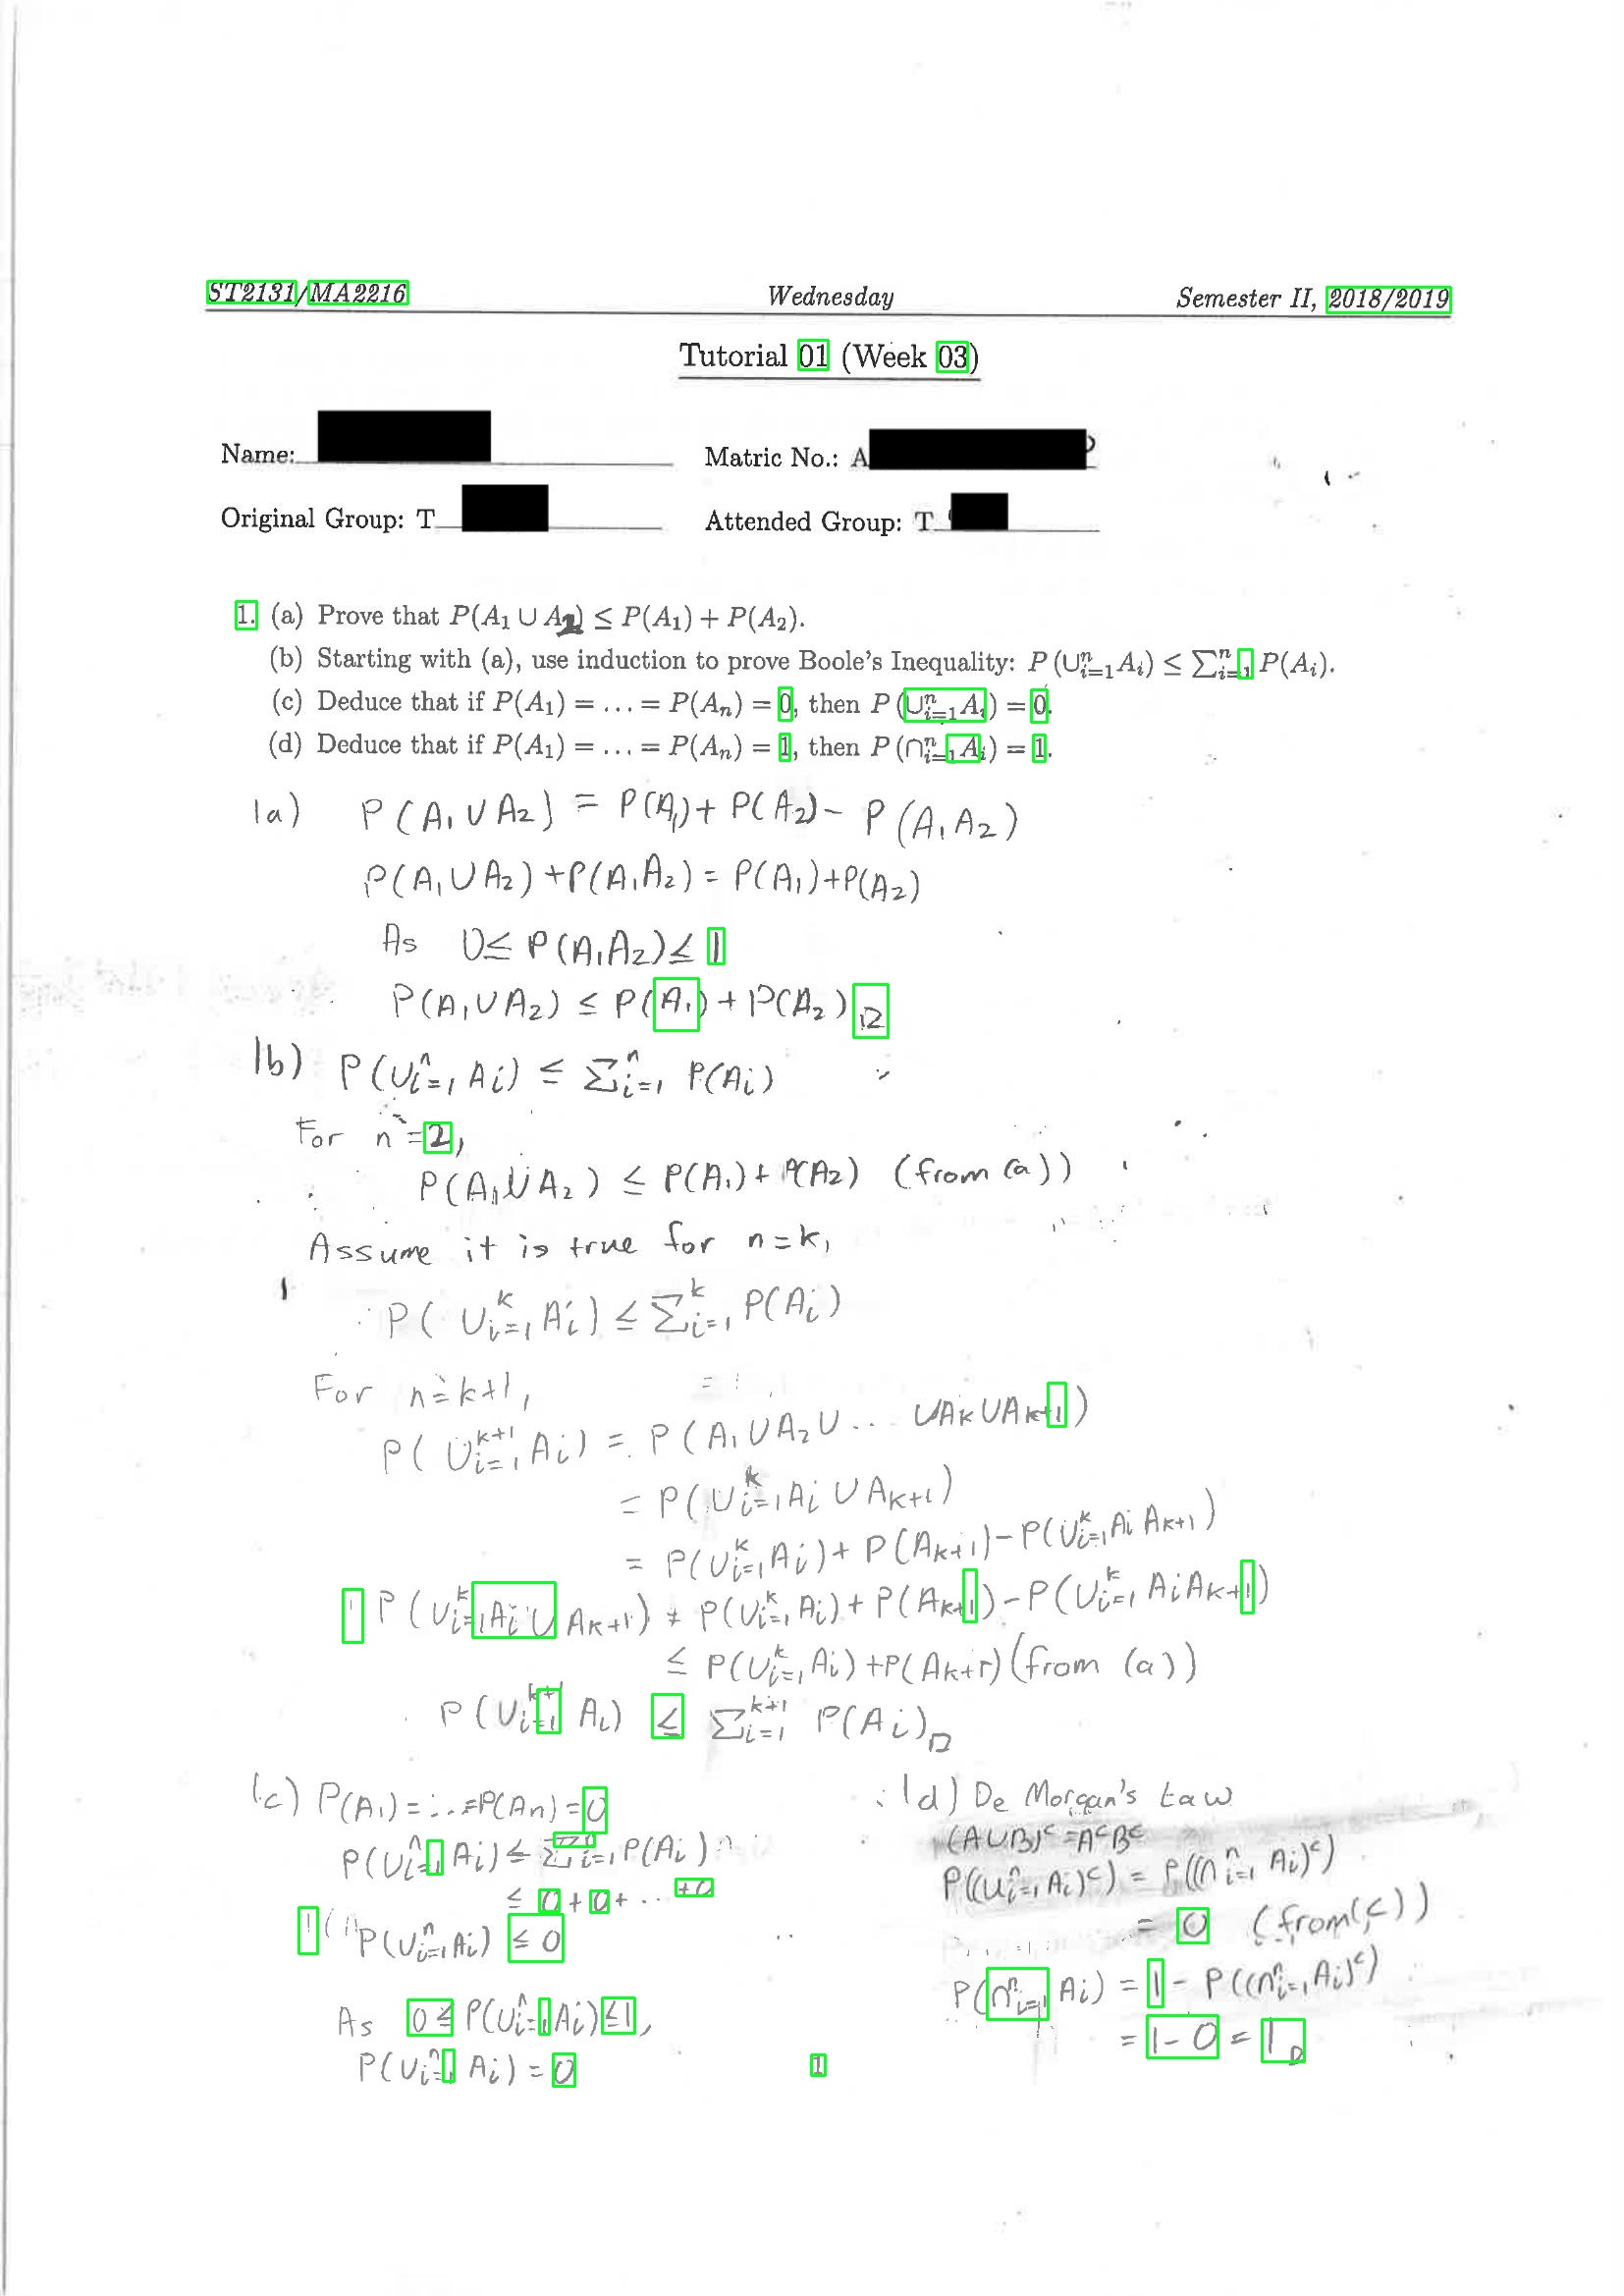 ST2131/MA2216 Wednesday Semester II, 2018/2019
Tutorial 01 (Week 03)
Name: Matric No.: A
Original Group: T Attended Group: T
1. (a) Prove that P(A₁ ∪ A₂) ≤ P(A₁) + P(A₂).
(b) Starting with (a), use induction to prove Boole's Inequality: P(∪ⁿᵢ₌₁Aᵢ) ≤ ∑ⁿᵢ₌₁ P(Aᵢ).
(c) Deduce that if P(A₁) = ... = P(Aₙ) = 0, then P(∪ⁿᵢ₌₁Aᵢ) = 0.
(d) Deduce that if P(A₁) = ... = P(Aₙ) = 1, then P(∩ⁿᵢ₌₁Aᵢ) = 1.
1a) P(A₁∪A₂) = P(A₁)+P(A₂)− P(A₁A₂)
P(A₁∪A₂)+P(A₁A₂) = P(A₁)+P(A₂)
As 0≤ P(A₁A₂)≤ 1
P(A₁∪A₂) ≤ P(A₁)+P(A₂) □
1b) P(∪ⁿᵢ₌₁ Aᵢ) ≤ ∑ⁿᵢ₌₁ P(Aᵢ)
For n=2,
P(A₁∪A₂) ≤ P(A₁)+P(A₂) (from (a))
Assume it is true for n=k,
P(∪ᵏᵢ₌₁Aᵢ) ≤ ∑ᵏᵢ₌₁ P(Aᵢ)
For n=k+1,
P(∪ᵏ⁺¹ᵢ₌₁Aᵢ) = P(A₁∪A₂∪... ∪Aₖ∪Aₖ₊₁)
= P(∪ᵏᵢ₌₁Aᵢ∪Aₖ₊₁)
= P(∪ᵏᵢ₌₁Aᵢ)+P(Aₖ₊₁)−P(∪ᵏᵢ₌₁Aᵢ Aₖ₊₁)
P(∪ᵏᵢ₌₁Aᵢ∪Aₖ₊₁) = P(∪ᵏᵢ₌₁Aᵢ)+P(Aₖ₊₁)−P(∪ᵏᵢ₌₁AᵢAₖ₊₁)
≤ P(∪ᵏᵢ₌₁Aᵢ)+P(Aₖ₊₁)(from (a))
P(∪ᵏ⁺¹ᵢ₌₁ Aᵢ) ≤ ∑ᵏ⁺¹ᵢ₌₁ P(Aᵢ) □
1c) P(A₁)=...=P(Aₙ)=0
P(∪ⁿᵢ₌₁Aᵢ) ≤ ∑ⁿᵢ₌₁P(Aᵢ)
≤ 0+0+...+0
P(∪ⁿᵢ₌₁Aᵢ) ≤ 0
As 0≤ P(∪ⁿᵢ₌₁Aᵢ)≤1,
P(∪ⁿᵢ₌₁Aᵢ) = 0
1d) De Morgan's Law
(A∪B)ᶜ=AᶜBᶜ
P((∪ⁿᵢ₌₁Aᵢ)ᶜ) = P((∩ⁿᵢ₌₁Aᵢ)ᶜ)
= 0 (from(c))
P(∩ⁿᵢ₌₁Aᵢ) = 1 − P((∩ⁿᵢ₌₁Aᵢ)ᶜ)
= 1−0 = 1 □
1